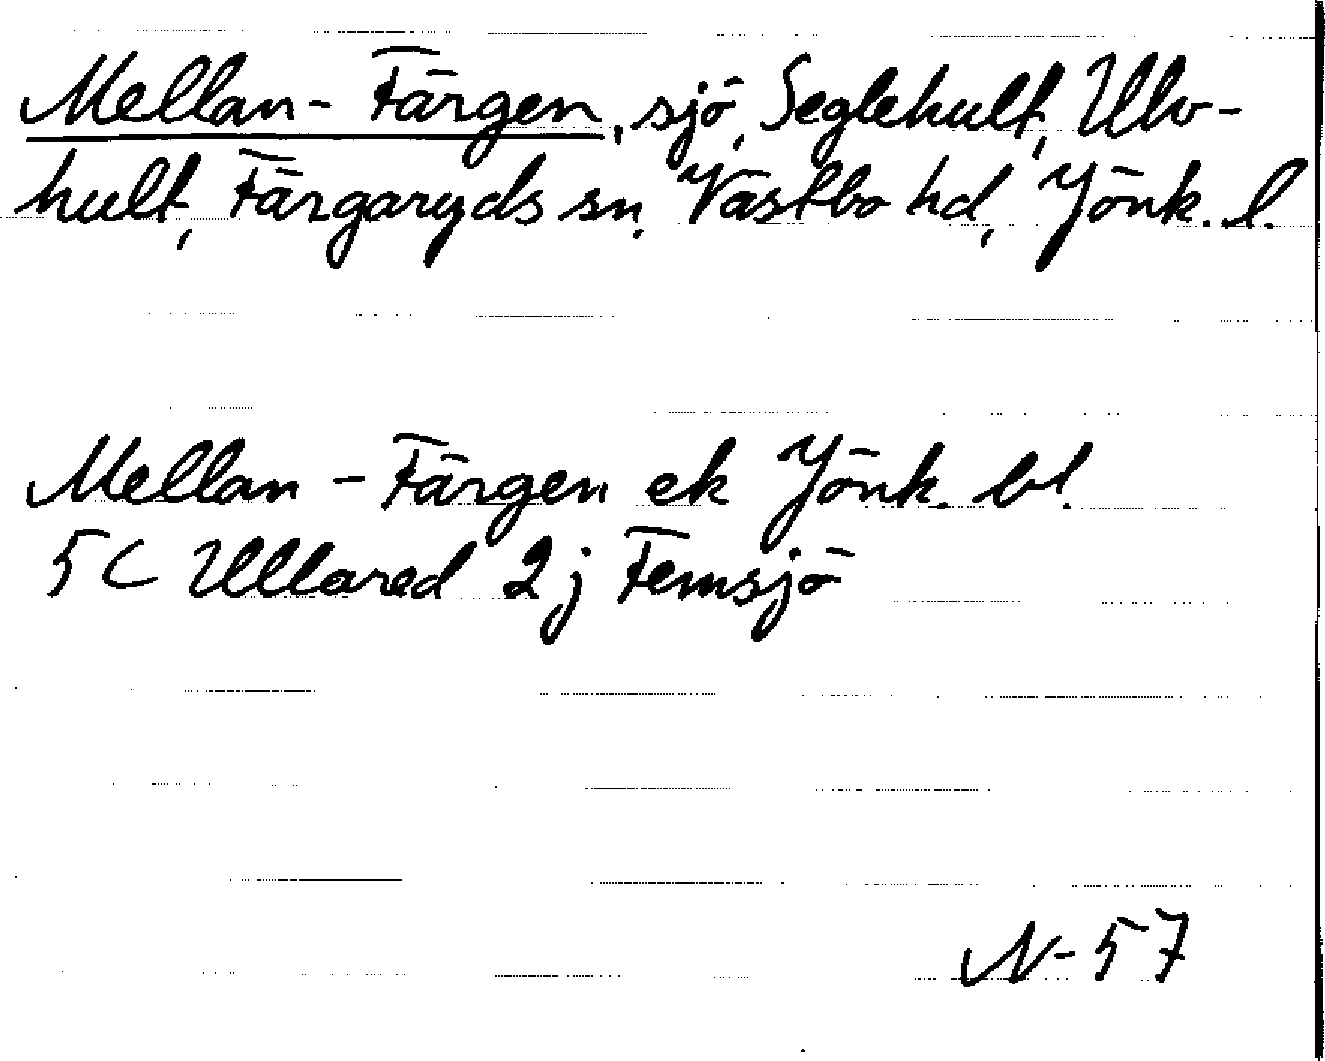 Mellan-Färgen, sjö, Seglehult, Ulv-
hult, Färgaryds sn, Västbo hd, Jönk. l.
Mellan-Färgen ek Jönk. bl.
5C Ullared 2j Femsjö
N-57